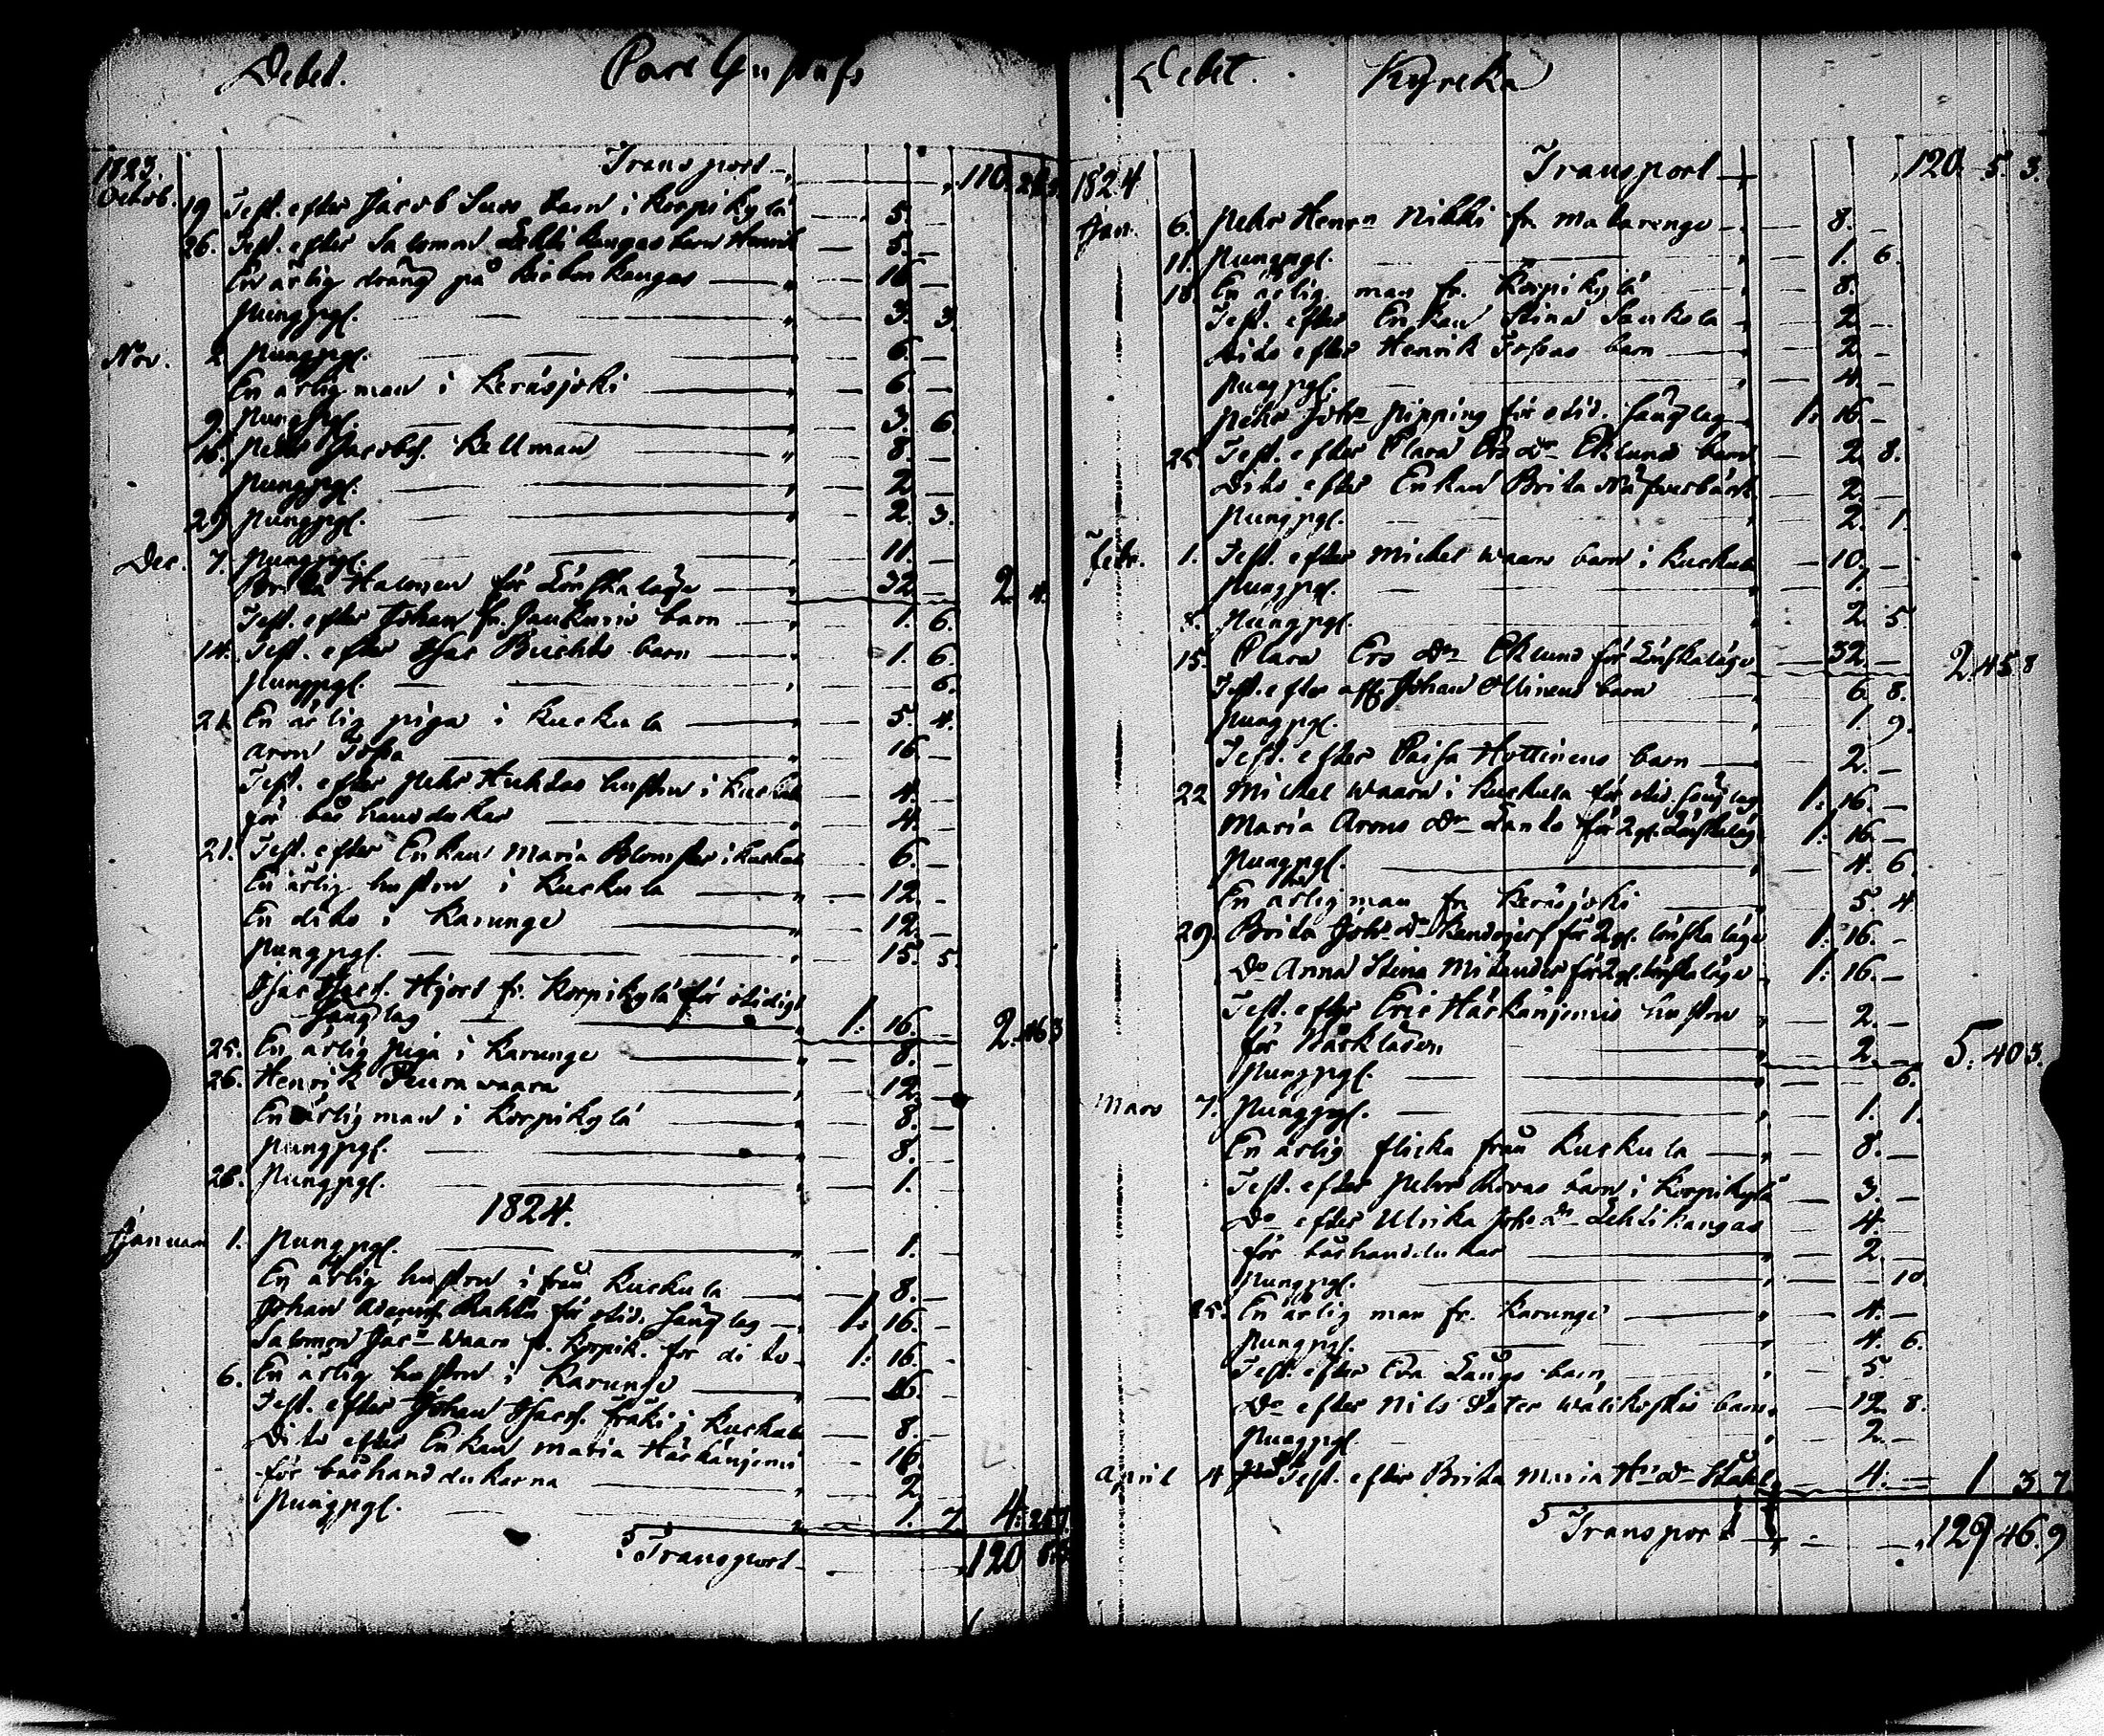 Debet. Carl Gustafs
1823. Transport 110.
Octob. 19 Test. efter Jacob Suos barn i Korpikylä 5.
26. Test. efter Salomon Lehtikangas barn Henrik 5.
En ärlig dräng på kangas 16
Pungpgl. 3. 3.
Nov. 2. Pungpgl. 6.
En ärlig man i Keräsjoki 6.
9. Pungpgl. 3. 6.
16. Pehr Jacobss. Kellman 8.
Pungpgl. 2.
29. Pungpgl. 2. 3.
Dec. 7. Pungpgl. 11.
Brita Halonen för Lönskaläge 32. 2. 4.
Test. efter Johan barn 1. 6.
14. Test. efter Isac barn 1. 6.
Pungpgl. 6.
21. En ärlig piga i Kuckula 5. 4.
Aron Tossa 16.
Test. efter Pehr Huhtas hustru i Kuckula 4.
för bårhanddukar 4.
21. Test. efter Enkan Maria Blomster i Kuckula 6.
En ärlig hustru i Kuckula 12.
En dito i Karunge 12.
Pungpgl. 15. 5.
Isac Isacs. Hjort fr. Korpikylä för otidigt
Sänglag 1: 16. 2. 46 3
25. En ärlig piga i Karunge 8.
26. Henrik Puurawaara 12.
En ärlig man i Korpikylä 8.
Pungpgl. 8.
28. Pungpgl. 1.
1824.
Januari 1. Pungpgl. 1.
En ärlig hustru i från Kuckula 8.
Johan Adamss. för otid. Sänglag 1: 16.
Salomon Jacs Waara fr. Korpik. för dito 1: 16.
6. En ärlig hustru i Karunge 16.
Test. efter Johan Isacss. Fräki i Kuckula 8.
Dito efter Enkan Maria Härkänjemi 16.
för bårhanddukarna 2.
Pungpgl. 1. 7. 4:
Transport 120
Debet. Kyrcka
1824 Transport 120. 5. 3.
Jan. 6. Pehr Henrn Nikki fr. Matarenge 8.
11. Pungpgl. 1. 6.
18. En ärlig man fr. Korpikylä 8.
Test. efter Enkan Stina Saukola 2.
Dito efter Henrik Tossas barn 2.
Pungpgl. 4.
Pehr Johs Pipping för otid. Sänglag 1: 16.
25. Test. efter Clara Ers Dr Eklund barn 2. 8.
Dito efter Enkan Brita 2.
Pungpgl. 2. 1.
Febr. 1. Test. efter Michel Waara barn i Kuckula 10.
Pungpgl. 1.
8. Pungpgl. 2. 5.
15. Clara Ers Dr Eklund för Lönskaläge 32. 2. 45 8
Test. efter afl. Johan Ollinens barn 6. 8.
Pungpgl. 1. 9.
Test. efter Caisa Hottinens barn 2.
22 Michel Waara i Kuckula för otid. Sänglag 1: 16.
Maria Arons Dr Lanto för 2 gl. Lönskaläg 1: 16.
Pungpgl. 4. 6.
En ärlig man fr. Keräsjoki 5. 4
29. Brita Johs Dr för 2 gl. lönskaläge 1: 16.
Do Anna Stina Milander för 2 gl. lönskaläge 1: 16.
Test. efter Eric Härkänjemis hustru 2.
för Bårkläden 2.
Pungpgl. 6. 5. 40 3.
Mars 7. Pungpgl. 1. 1.
En ärlig flicka från Kuckula 8.
Test. efter Pehr barn i Korpikylä 3.
Do efter Ulrika Johs Dr Lehtikangas 4.
för bårhanddukar 2.
Pungpgl. 10.
25. En ärlig man fr. Karunge 4.
Pungpgl. 4. 6.
Test. efter Eva Laugs barn 5.
Do efter Nils Peter Walikoskis barn 12. 8.
Pungpgl. 2.
April 4 Test. efter Brita Maria Hs Dr Ståhl 4. 1 3 7
Transport 129 46. 9